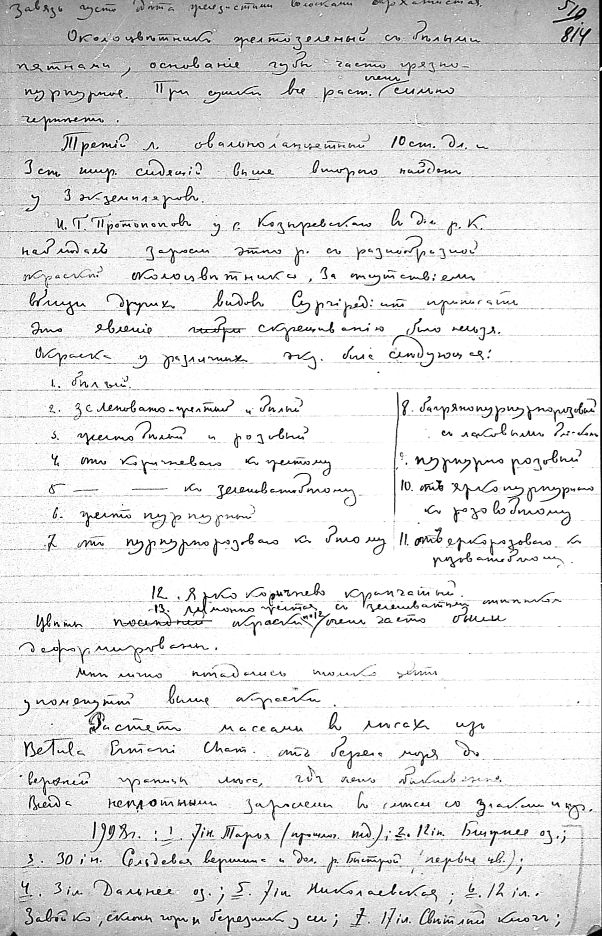 Завязь густо одета железистыми волосками бархатистая.
510
814
Околоцвѣтникъ желтозеленый съ бѣлыми
пятнами, основаніе губы часто грязно-
пурпурное. При сушки все раст. очень сильно
чернѣетъ.
Третій л. овальноланцетный 10 ст. дл. и
3 ст. шир. сидящій выше второго найденъ
у 3 экземпляровъ.
И. Т. Протопоповъ у с. Козыревскаго въ дол. р. К.
наблюдалъ заросли этого р. съ разнообразной
окраской околоцвѣтника. За отсутствіемъ
вблизи другихъ видовъ Cypripedium приписать
это явленіе скрещиванію было нельзя.
Окраска у различныхъ экз. была слѣдующая:
1. бѣлый.
2. зеленовато-желтый и бѣлый
3. желто бѣлый и розовый
4. отъ коричневаго къ желтому
5 — — къ зеленоватобѣлому.
6. желто пурпурный
7. отъ пурпурнорозоваго къ бѣлому
8. багрянопурпурнорозовый
съ лаковымъ
9. пурпурно розовый
10. отъ яркопурпурнаго
къ розовобѣлому
11. отъ яркорозоваго къ
розоватобѣлому.
12. Ярко коричнево крапчатый.
13. лимонно желтая съ зеленоватымъ оттѣнкомъ
Цвѣты последней окраски №12 очень часто были
деформированы.
Мнѣ лично попадались только
упомянутой выше окраски.
Растетъ массами въ лѣсахъ изъ
Betula Ermani Cham. отъ берега моря до
верхней границы лѣса, гдѣ
Всегда неплотными зарослями въ смѣси со злаками и др.
1908 г.: 1. 7 iн. Тарья; 2. 12 iн. Ближнее оз.;
3. 30 iн. Сельдевая вершина и дол. р. Быстрой (первые цв.);
4. 3 iл. Дальнее оз.; 5. 7 iл. Николаевская; 6. 12 iл.
Завойко, склоны горы и березникъ у сел.; 7. 17 iл. Свѣтлый ключъ;